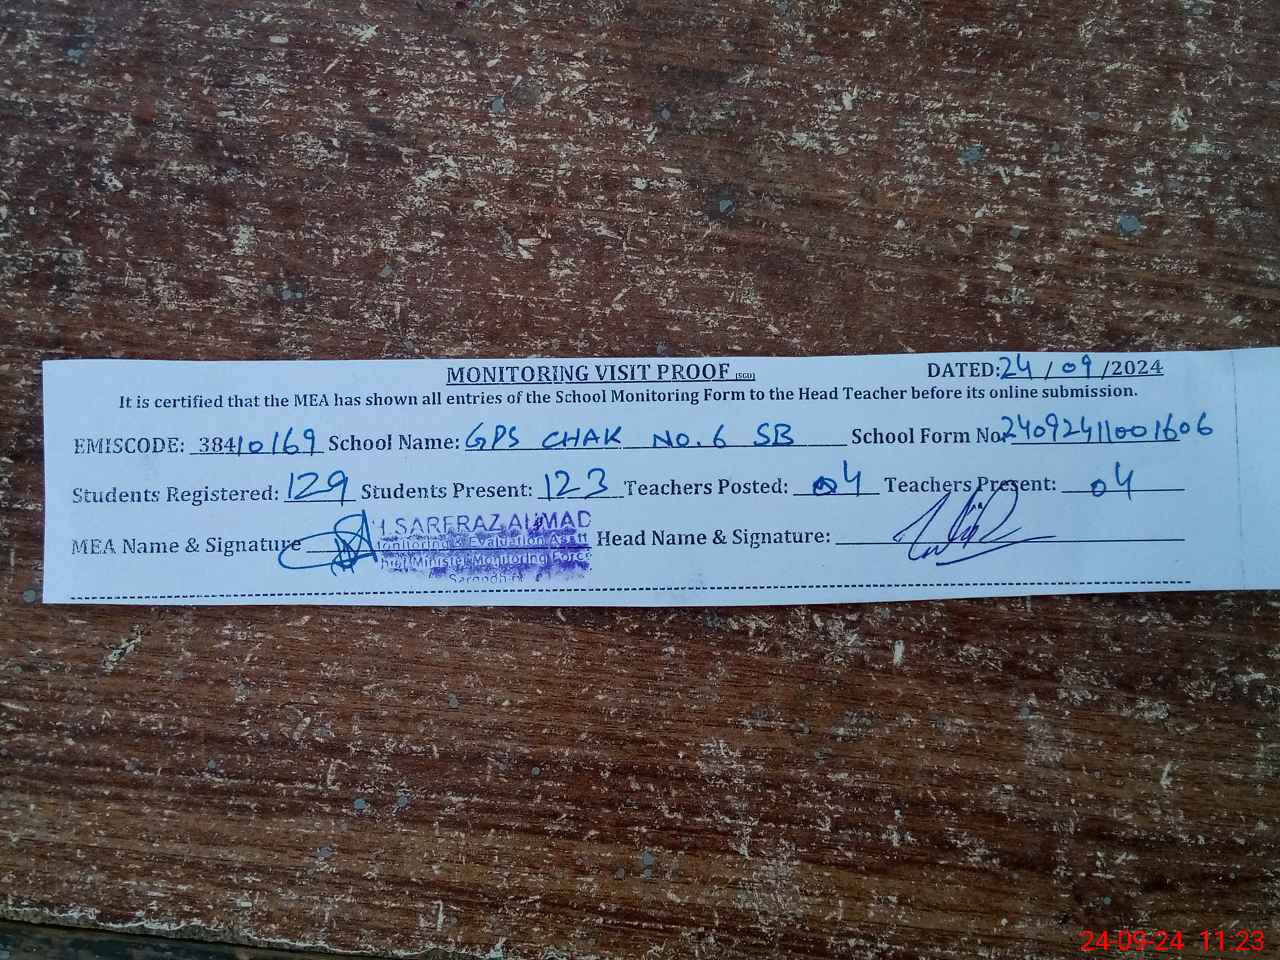 MONITORING VISIT PROOF [SGD] DATED: 24/09/2024
It is certified that the MEA has shown all entries of the School Monitoring Form to the Head Teacher before its online submission.
EMISCODE: 38410169 School Name: GPS CHAK NO. 6 SB School Form No. 24092411001606
Students Registered: 129 Students Present: 123 Teachers Posted: 04 Teachers Present: 04
MEA Name & Signature SARFRAZ AHMAD Head Name & Signature:
Monitoring & Evaluation Asstt
Chief Minister Monitoring Force
Sargodha
24-09-24 11:23